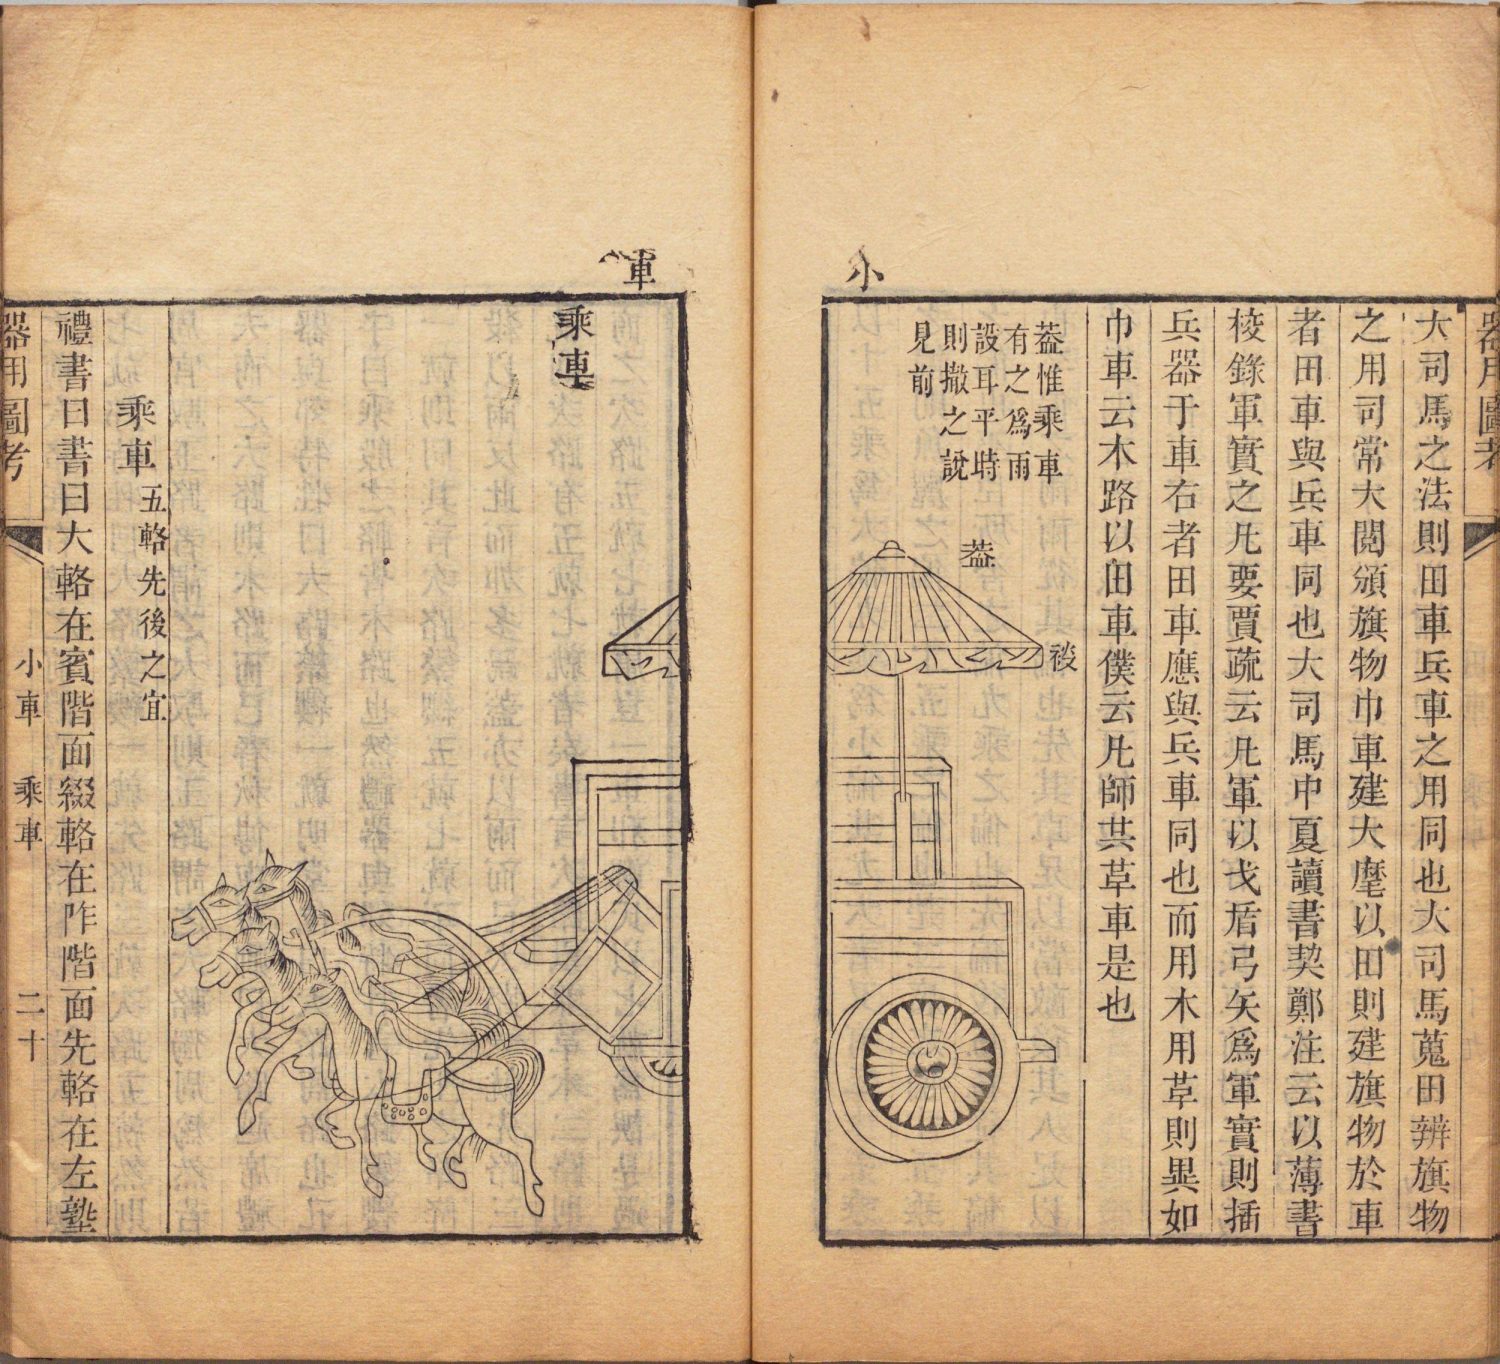 器用圖考
大司馬之法則田車兵車之用同也大司馬蒐田辨旗物
之用司常大閱頒旗物巾車建大麾以田則建旗物於車
者田車與兵車同也大司馬中夏讀書契鄭注云以薄書
校錄軍實之凡要賈疏云凡軍以戈盾弓矢爲軍實則插
兵器于車右者田車應與兵車同也而用木用革則異如
巾車云木路以田車僕云凡師共革車是也
小
葢惟乘車
有之爲雨
設耳平時
則撤之說
見前
葢
䘸
車
乘車
乘車五輅先後之宜
禮書曰書曰大輅在賓階面綴輅在阼階面先輅在左塾
器用圖考
小車 乘車
二十